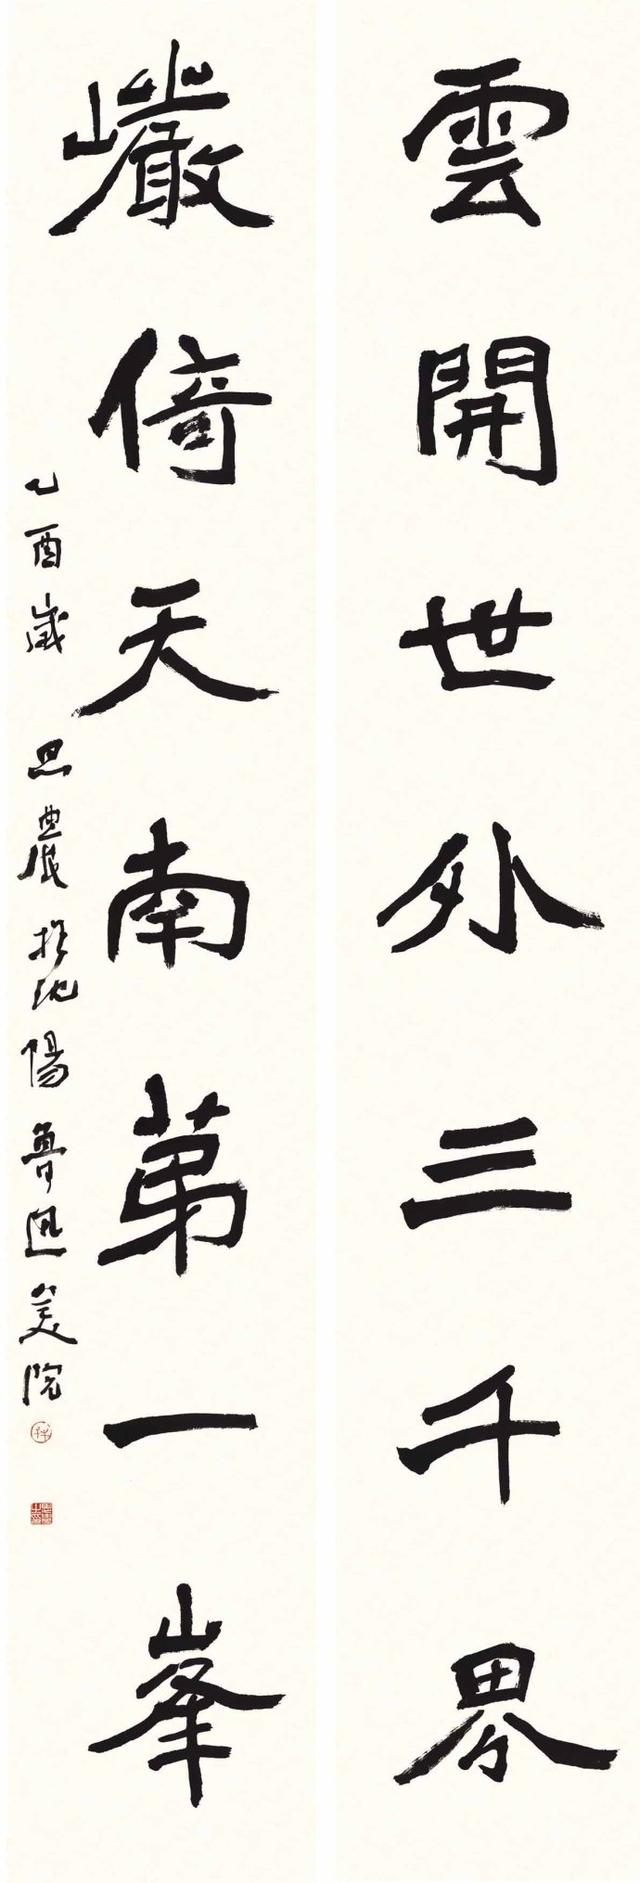 雲開世外三千界
巖倚天南第一峯
乙酉歲 思農於沈陽魯迅美院